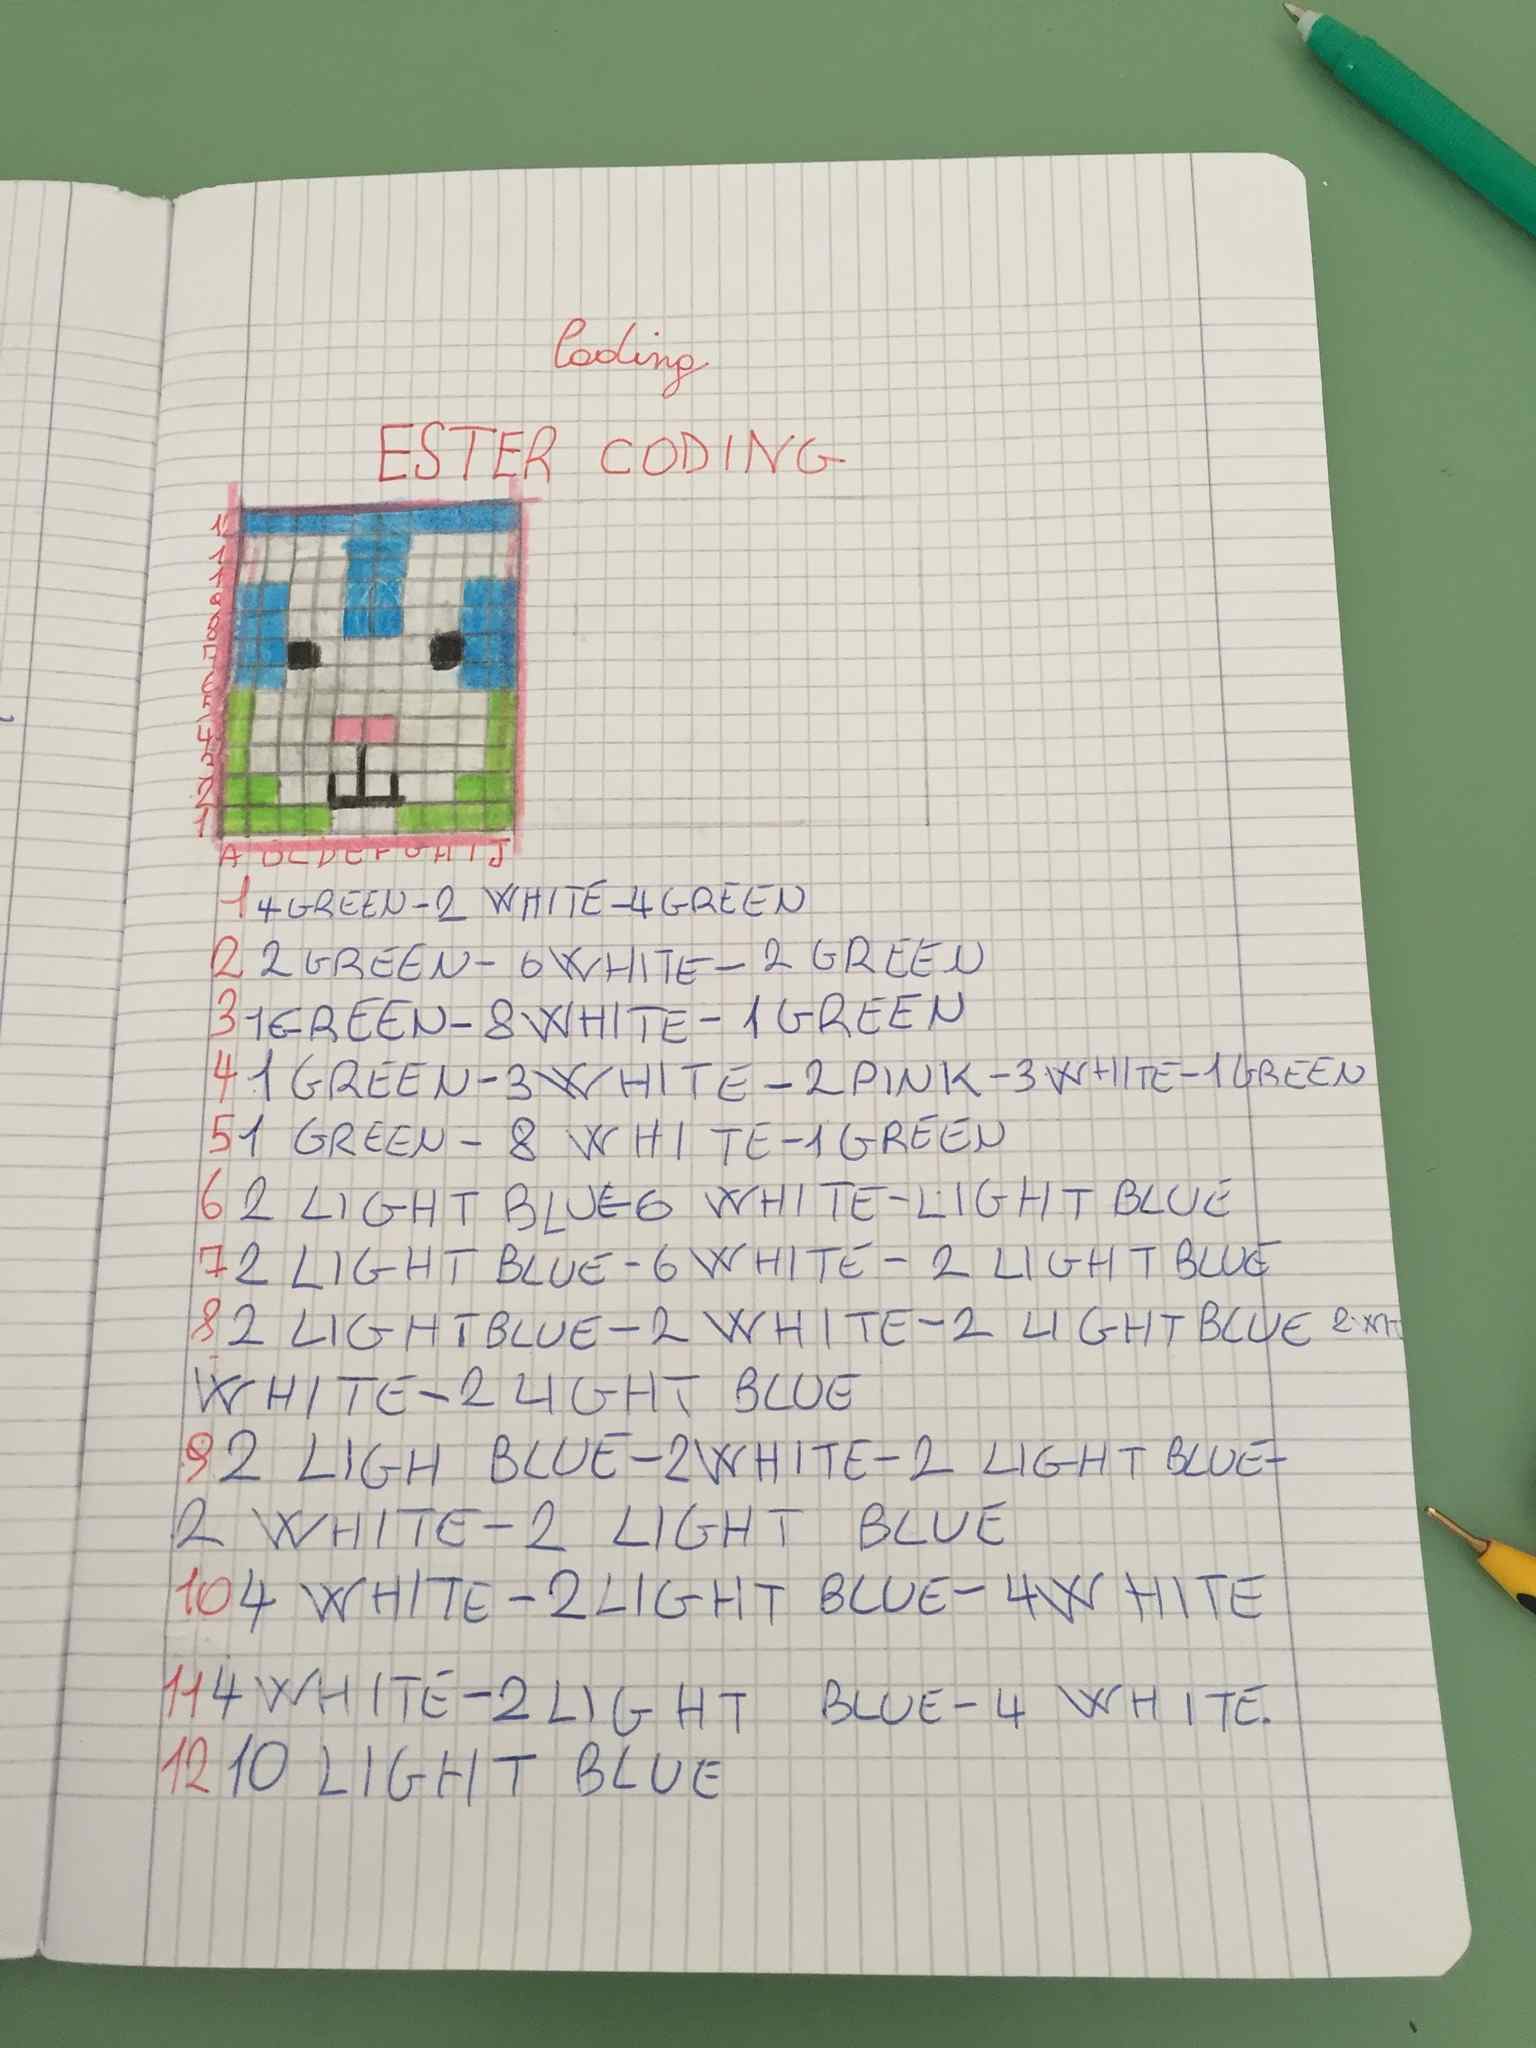 Coding
ESTER CODING
12
11
10
9
8
7
6
5
4
3
2
1
A B C D E F G H I J
1 4 GREEN-2 WHITE-4 GREEN
2 2 GREEN-6 WHITE-2 GREEN
3 1 GREEN-8 WHITE-1 GREEN
4 1 GREEN-3 WHITE-2 PINK-3 WHITE-1 GREEN
5 1 GREEN-8 WHITE-1 GREEN
6 2 LIGHT BLUE-6 WHITE-LIGHT BLUE
7 2 LIGHT BLUE-6 WHITE-2 LIGHT BLUE
8 2 LIGHT BLUE-2 WHITE-2 LIGHT BLUE 2
WHITE-2 LIGHT BLUE
9 2 LIGH BLUE-2 WHITE-2 LIGHT BLUE-
2 WHITE-2 LIGHT BLUE
10 4 WHITE-2 LIGHT BLUE-4 WHITE
11 4 WHITE-2 LIGHT BLUE-4 WHITE.
12 10 LIGHT BLUE